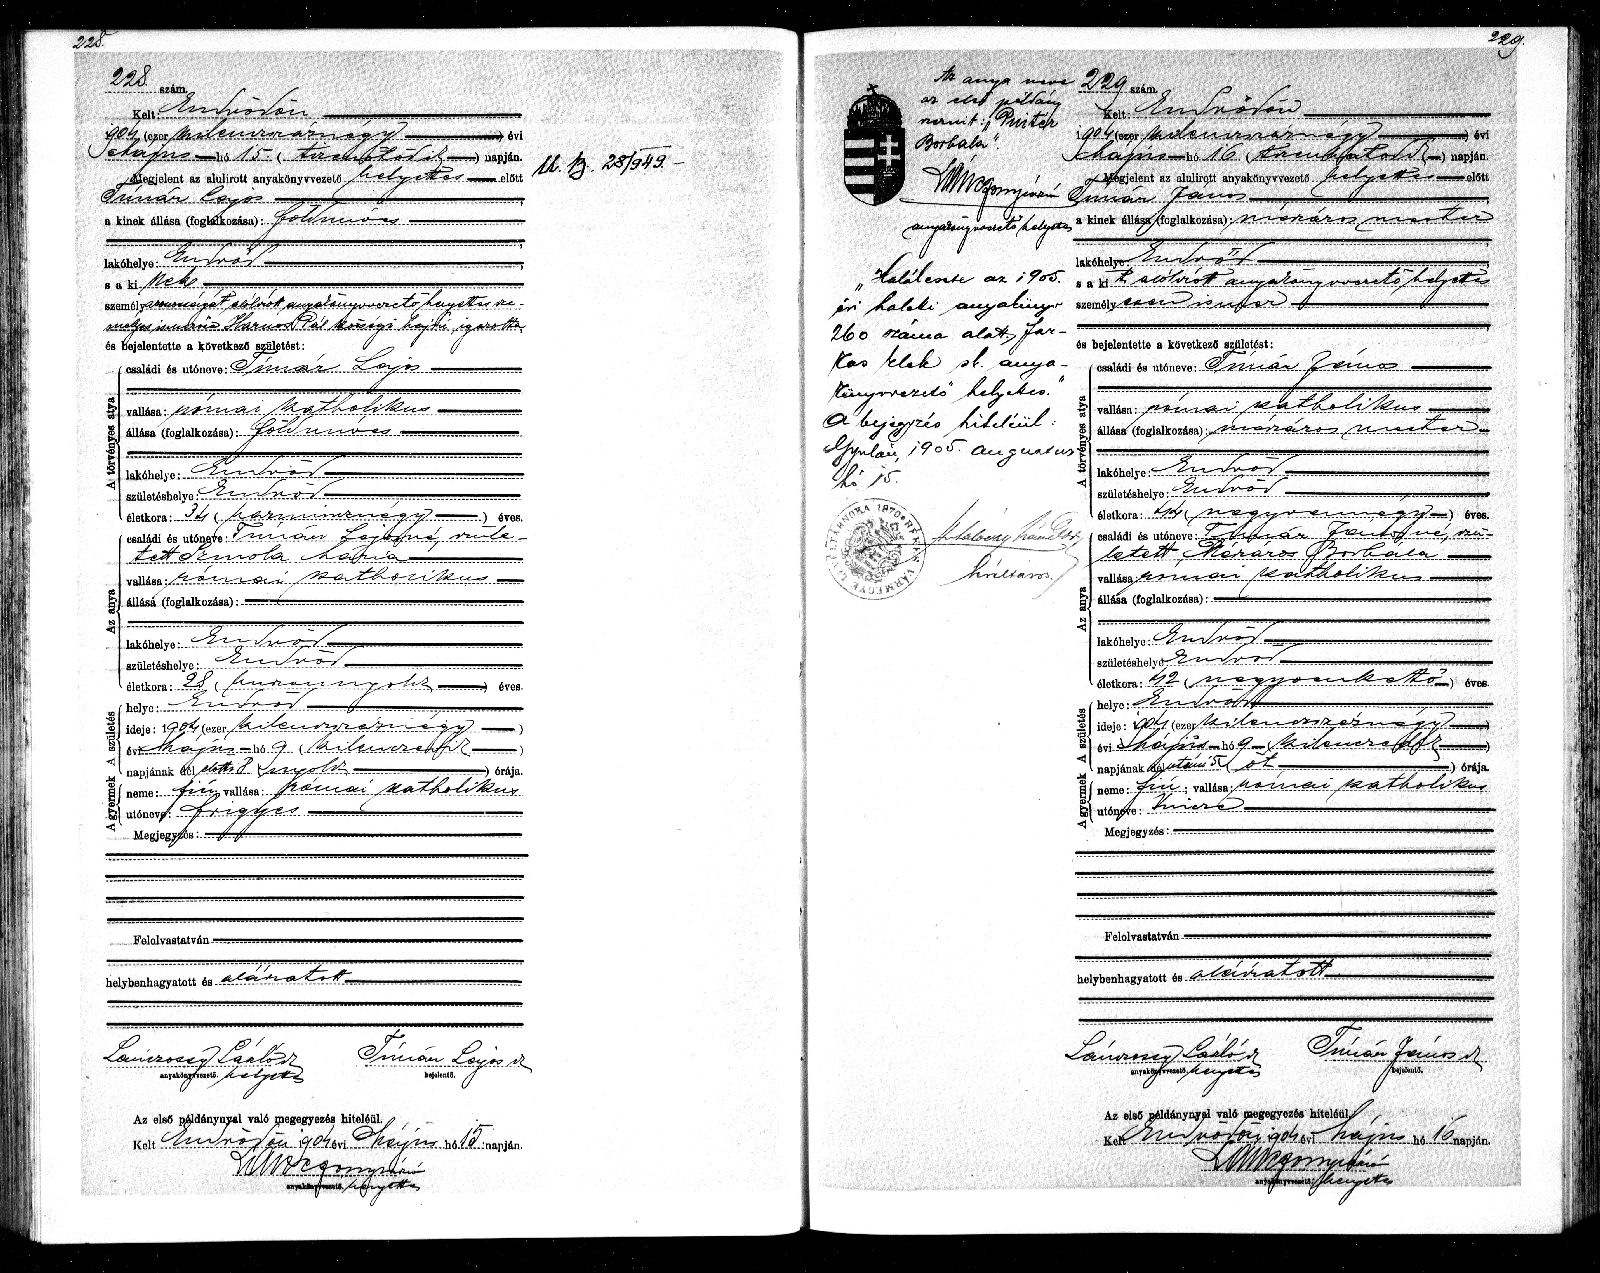 228.
228 szám.
Kelt: Endrődön
904 (ezer kilenczszáznégy) évi
május hó 15 (tizenötödik) napján.
Megjelent az alulirott anyakönyvvezető helyettes előtt
Timár Lajos
a kinek állása (foglalkozása): földműves
lakóhelye: Endrőd
s a ki nek
személyazonosságát alólírott anyakönyvvezető helyettes
Pál községi hajdú igazolta,
és bejelentette a következő születést:
A törvényes atya
családi és utóneve: Timár Lajos
vallása: római katholikus
állása (foglalkozása): földműves
lakóhelye: Endrőd
születéshelye: Endrőd
életkora: 34 (harmincznégy) éves.
Az anya
családi és utóneve: Timár Lajosné, szüle-
tett Mária
vallása: római katholikus
állása (foglalkozása):
lakóhelye: Endrőd
születéshelye: Endrőd
életkora: 28 (huszonnyolcz) éves.
A születés
helye: Endrőd
ideje: 1904 (ezer kilenczszáznégy)
évi május hó 9 (kilenczedik)
napjának dél előtti 8 (nyolcz) órája.
A gyermek
neme: fiú; vallása: római katholikus
utóneve: Frigyes
Megjegyzés:
Felolvastatván
helybenhagyatott és aláiratott
László Timár Lajos
anyakönyvvezető. helyettes bejelentő.
Az első példánynyal való megegyezés hiteléül.
Kelt Endrődön 904 évi május hó 15 napján.
anyakönyvvezető. helyettes
28/949.
229.
Az anya neve
az első példány
szerint: „
Borbála".
anyakönyvvezető helyettes
„Halálesete az 1905.
évi halotti anyakönyv
260 száma alatt, Far-
kas Elek sk. anya-
könyvvezető helyettes."
A bejegyzés hiteléül:
Gyulán, 1905. augusztus
hó 15.
BÉKÉS VÁRMEGYE LEVÉLTÁRNOKA 1870
229 szám.
Kelt: Endrődön
1904 (ezer kilenczszáznégy) évi
május hó 16 (tizenhatodik) napján.
Megjelent az alulirott anyakönyvvezető helyettes előtt
Timár János
a kinek állása (foglalkozása): mészáros mester
lakóhelye: Endrőd
s a ki t alólírott anyakönyvvezető helyettes
személyesen ismer
és bejelentette a következő születést:
A törvényes atya
családi és utóneve: Timár János
vallása: római katholikus
állása (foglalkozása): mészáros mester
lakóhelye: Endrőd
születéshelye: Endrőd
életkora: 44 (negyvennégy) éves.
Az anya
családi és utóneve: Timár Jánosné, szü-
letett Mészáros Borbála
vallása: római katholikus
állása (foglalkozása):
lakóhelye: Endrőd
születéshelye: Endrőd
életkora: 42 (negyvenkettő) éves.
A születés
helye: Endrőd
ideje: 1904 (ezer kilenczszáznégy)
évi május hó 9 (kilenczedik)
napjának dél utáni 5 (öt) órája.
A gyermek
neme: fiú; vallása: római katholikus
utóneve: Imre
Megjegyzés:
Felolvastatván
helybenhagyatott és aláiratott
László Timár János
anyakönyvvezető. helyettes bejelentő.
Az első példánynyal való megegyezés hiteléül.
Kelt Endrődön 904 évi május hó 16 napján.
anyakönyvvezető. helyettes